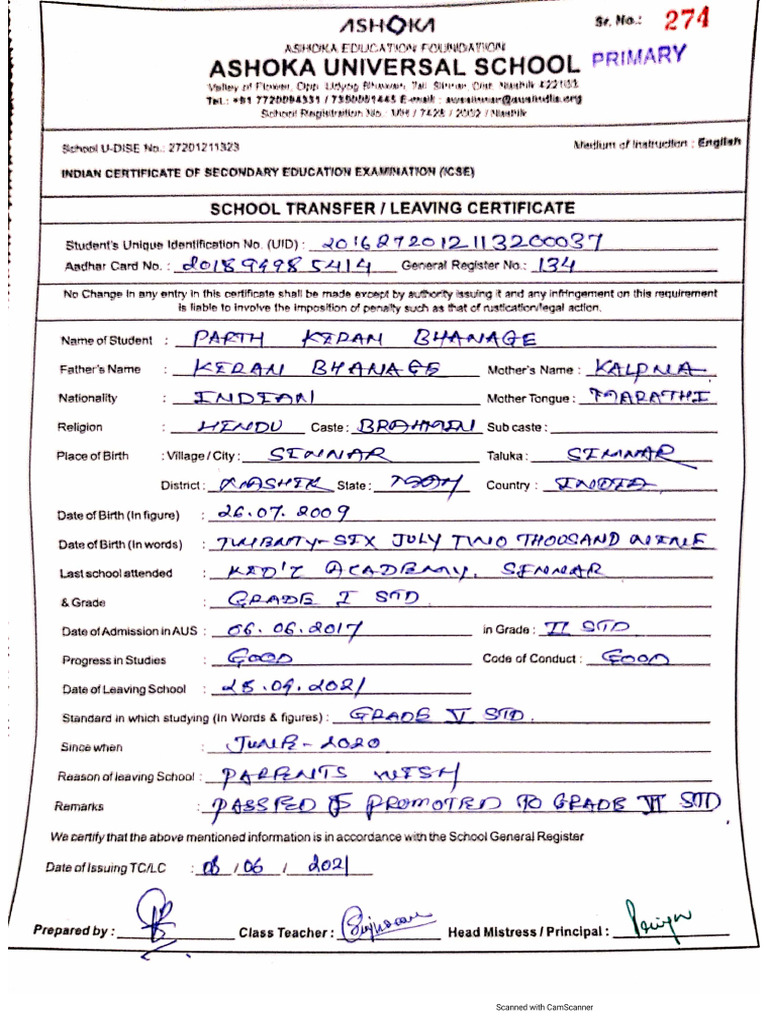 ASHOKA
Sr. No.: 274
ASHOKA EDUCATION FOUNDATION
ASHOKA UNIVERSAL SCHOOL PRIMARY
Valley of Flower, Opp. Udyog Bhawan, Tal. Sinnar, Dist. Nashik 422103
Tel.: +91 7720094331 /
School Registration No.: MH / 7428 / 2002 / Nashik
School U-DISE No.: 27201211323 Medium of Instruction : English
INDIAN CERTIFICATE OF SECONDARY EDUCATION EXAMINATION (ICSE)
SCHOOL TRANSFER / LEAVING CERTIFICATE
Student's Unique Identification No. (UID) : 2016272012113200037
Aadhar Card No. : 201899985414 General Register No.: 134
No Change in any entry in this certificate shall be made except by authority issuing it and any infringement on this requirement
is liable to involve the imposition of penalty such as that of rustication/legal action.
Name of Student : PARTH KIRAN BHANAGE
Father's Name : KIRAN BHANAGE Mother's Name : KALPNA
Nationality : INDIAN Mother Tongue : MARATHI
Religion : HINDU Caste : BRAHMIN Sub caste :
Place of Birth : Village / City : SINNAR Taluka : SINNAR
District : NASHIK State : MAH Country : INDIA
Date of Birth (In figure) : 26.07.2009
Date of Birth (In words) : TWENTY-SIX JULY TWO THOUSAND NINE
Last school attended : KID'Z ACADEMY, SINNAR
& Grade : GRADE I STD.
Date of Admission in AUS : 06.06.2017 in Grade : II STD
Progress in Studies : GOOD Code of Conduct : GOOD
Date of Leaving School : 25.09.2021
Standard in which studying (In Words & figures) : GRADE V STD.
Since when : JUNE - 2020
Reason of leaving School : PARENTS WISH
Remarks : PASSED & PROMOTED TO GRADE VI STD
We certify that the above mentioned information is in accordance with the School General Register
Date of Issuing TC/LC : 08 / 06 / 2021
Prepared by : Class Teacher : Head Mistress / Principal :
Scanned with CamScanner